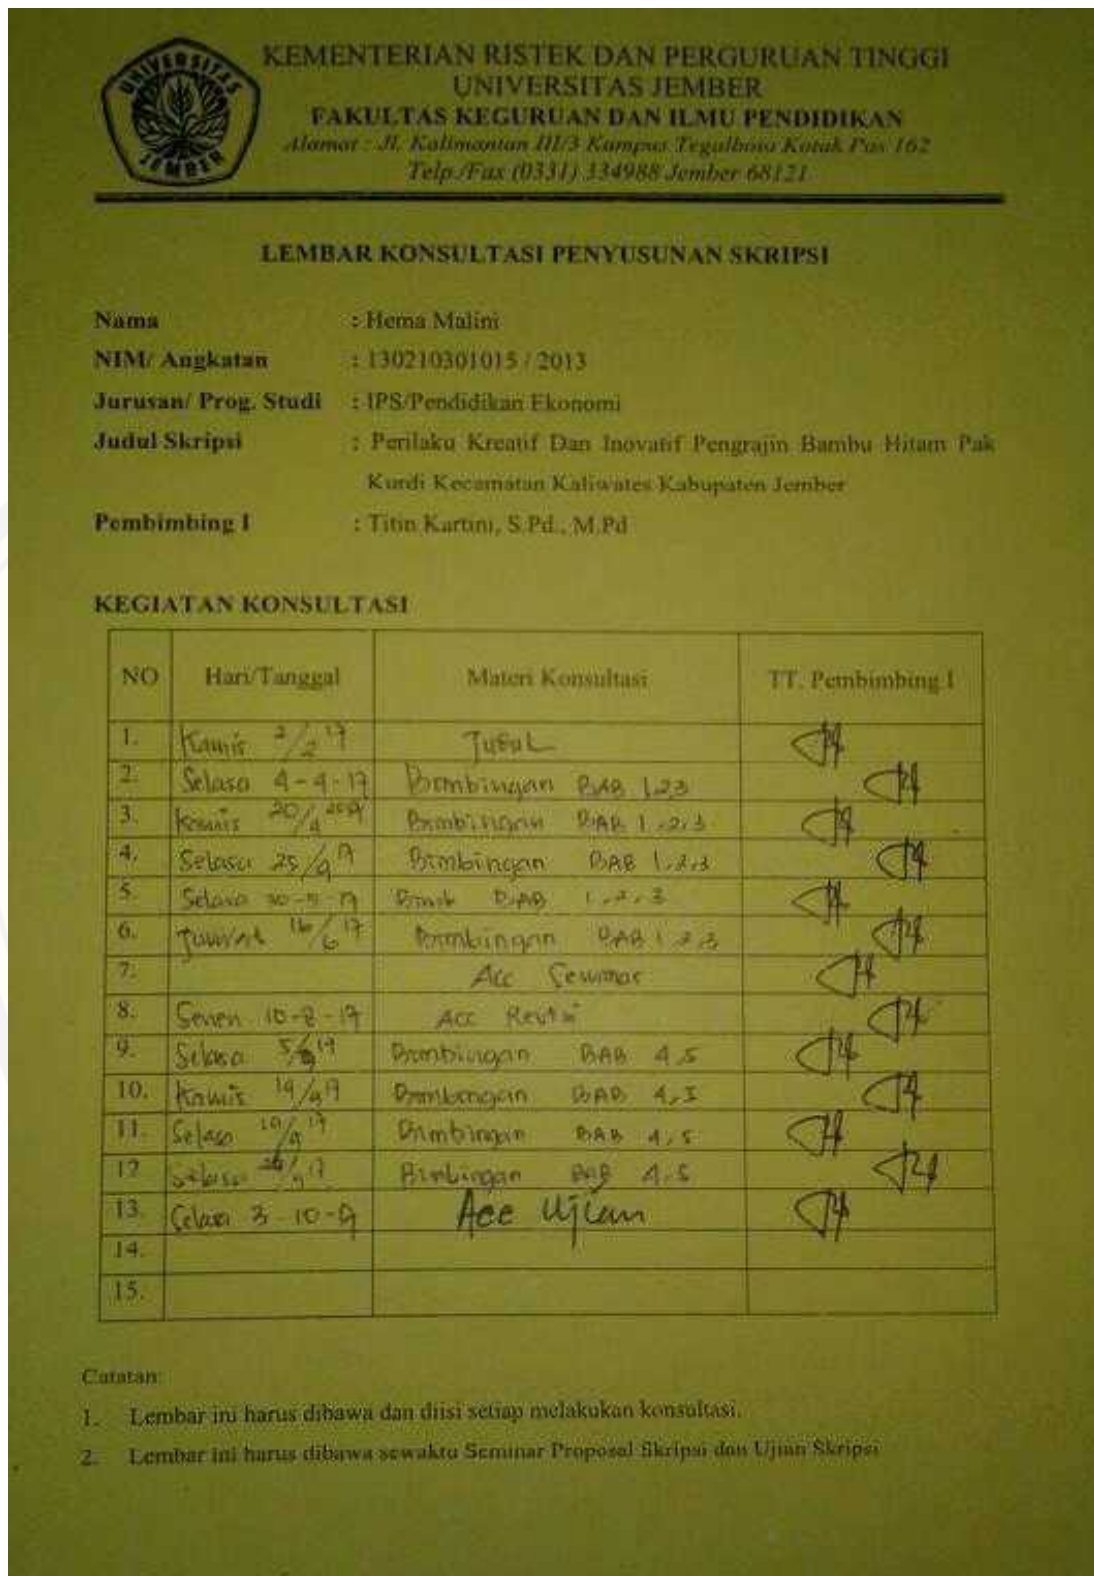 UNIVERSITAS
JEMBER
KEMENTERIAN RISTEK DAN PERGURUAN TINGGI
UNIVERSITAS JEMBER
FAKULTAS KEGURUAN DAN ILMU PENDIDIKAN
Alamat : Jl. Kalimantan III/3 Kampus Tegalboto Kotak Pos 162
Telp./Fax (0331) 334988 Jember 68121
LEMBAR KONSULTASI PENYUSUNAN SKRIPSI
Nama : Hema Malini
NIM/ Angkatan : 130210301015 / 2013
Jurusan/ Prog. Studi : IPS/Pendidikan Ekonomi
Judul Skripsi : Perilaku Kreatif Dan Inovatif Pengrajin Bambu Hitam Pak
Kurdi Kecamatan Kaliwates Kabupaten Jember
Pembimbing I : Titin Kartini, S.Pd., M.Pd
KEGIATAN KONSULTASI
NO Hari/Tanggal Materi Konsultasi TT. Pembimbing I
1. Kamis 2/2 17 Judul
2. Selasa 4-4-17 Bimbingan BAB 1,2,3
3. Kamis 20/4 Bimbingan BAB 1,2,3
4. Selasa Bimbingan BAB 1,2,3
5. Selasa BAB 1,2,3
6. 16/6 17 Bimbingan BAB 1,2,3
7. Acc Seminar
8. Senen 10-8-17 Acc Revisi
9. Selasa Bimbingan BAB 4,5
10. Kamis Bimbingan BAB 4,5
11. Selasa 19/9 17 Bimbingan BAB 4,5
12 Selasa Bimbingan BAB 4,5
13. Selasa 3-10-17 Acc Ujian
14.
15.
Catatan:
1. Lembar ini harus dibawa dan diisi setiap melakukan konsultasi.
2. Lembar ini harus dibawa sewaktu Seminar Proposal Skripsi dan Ujian Skripsi